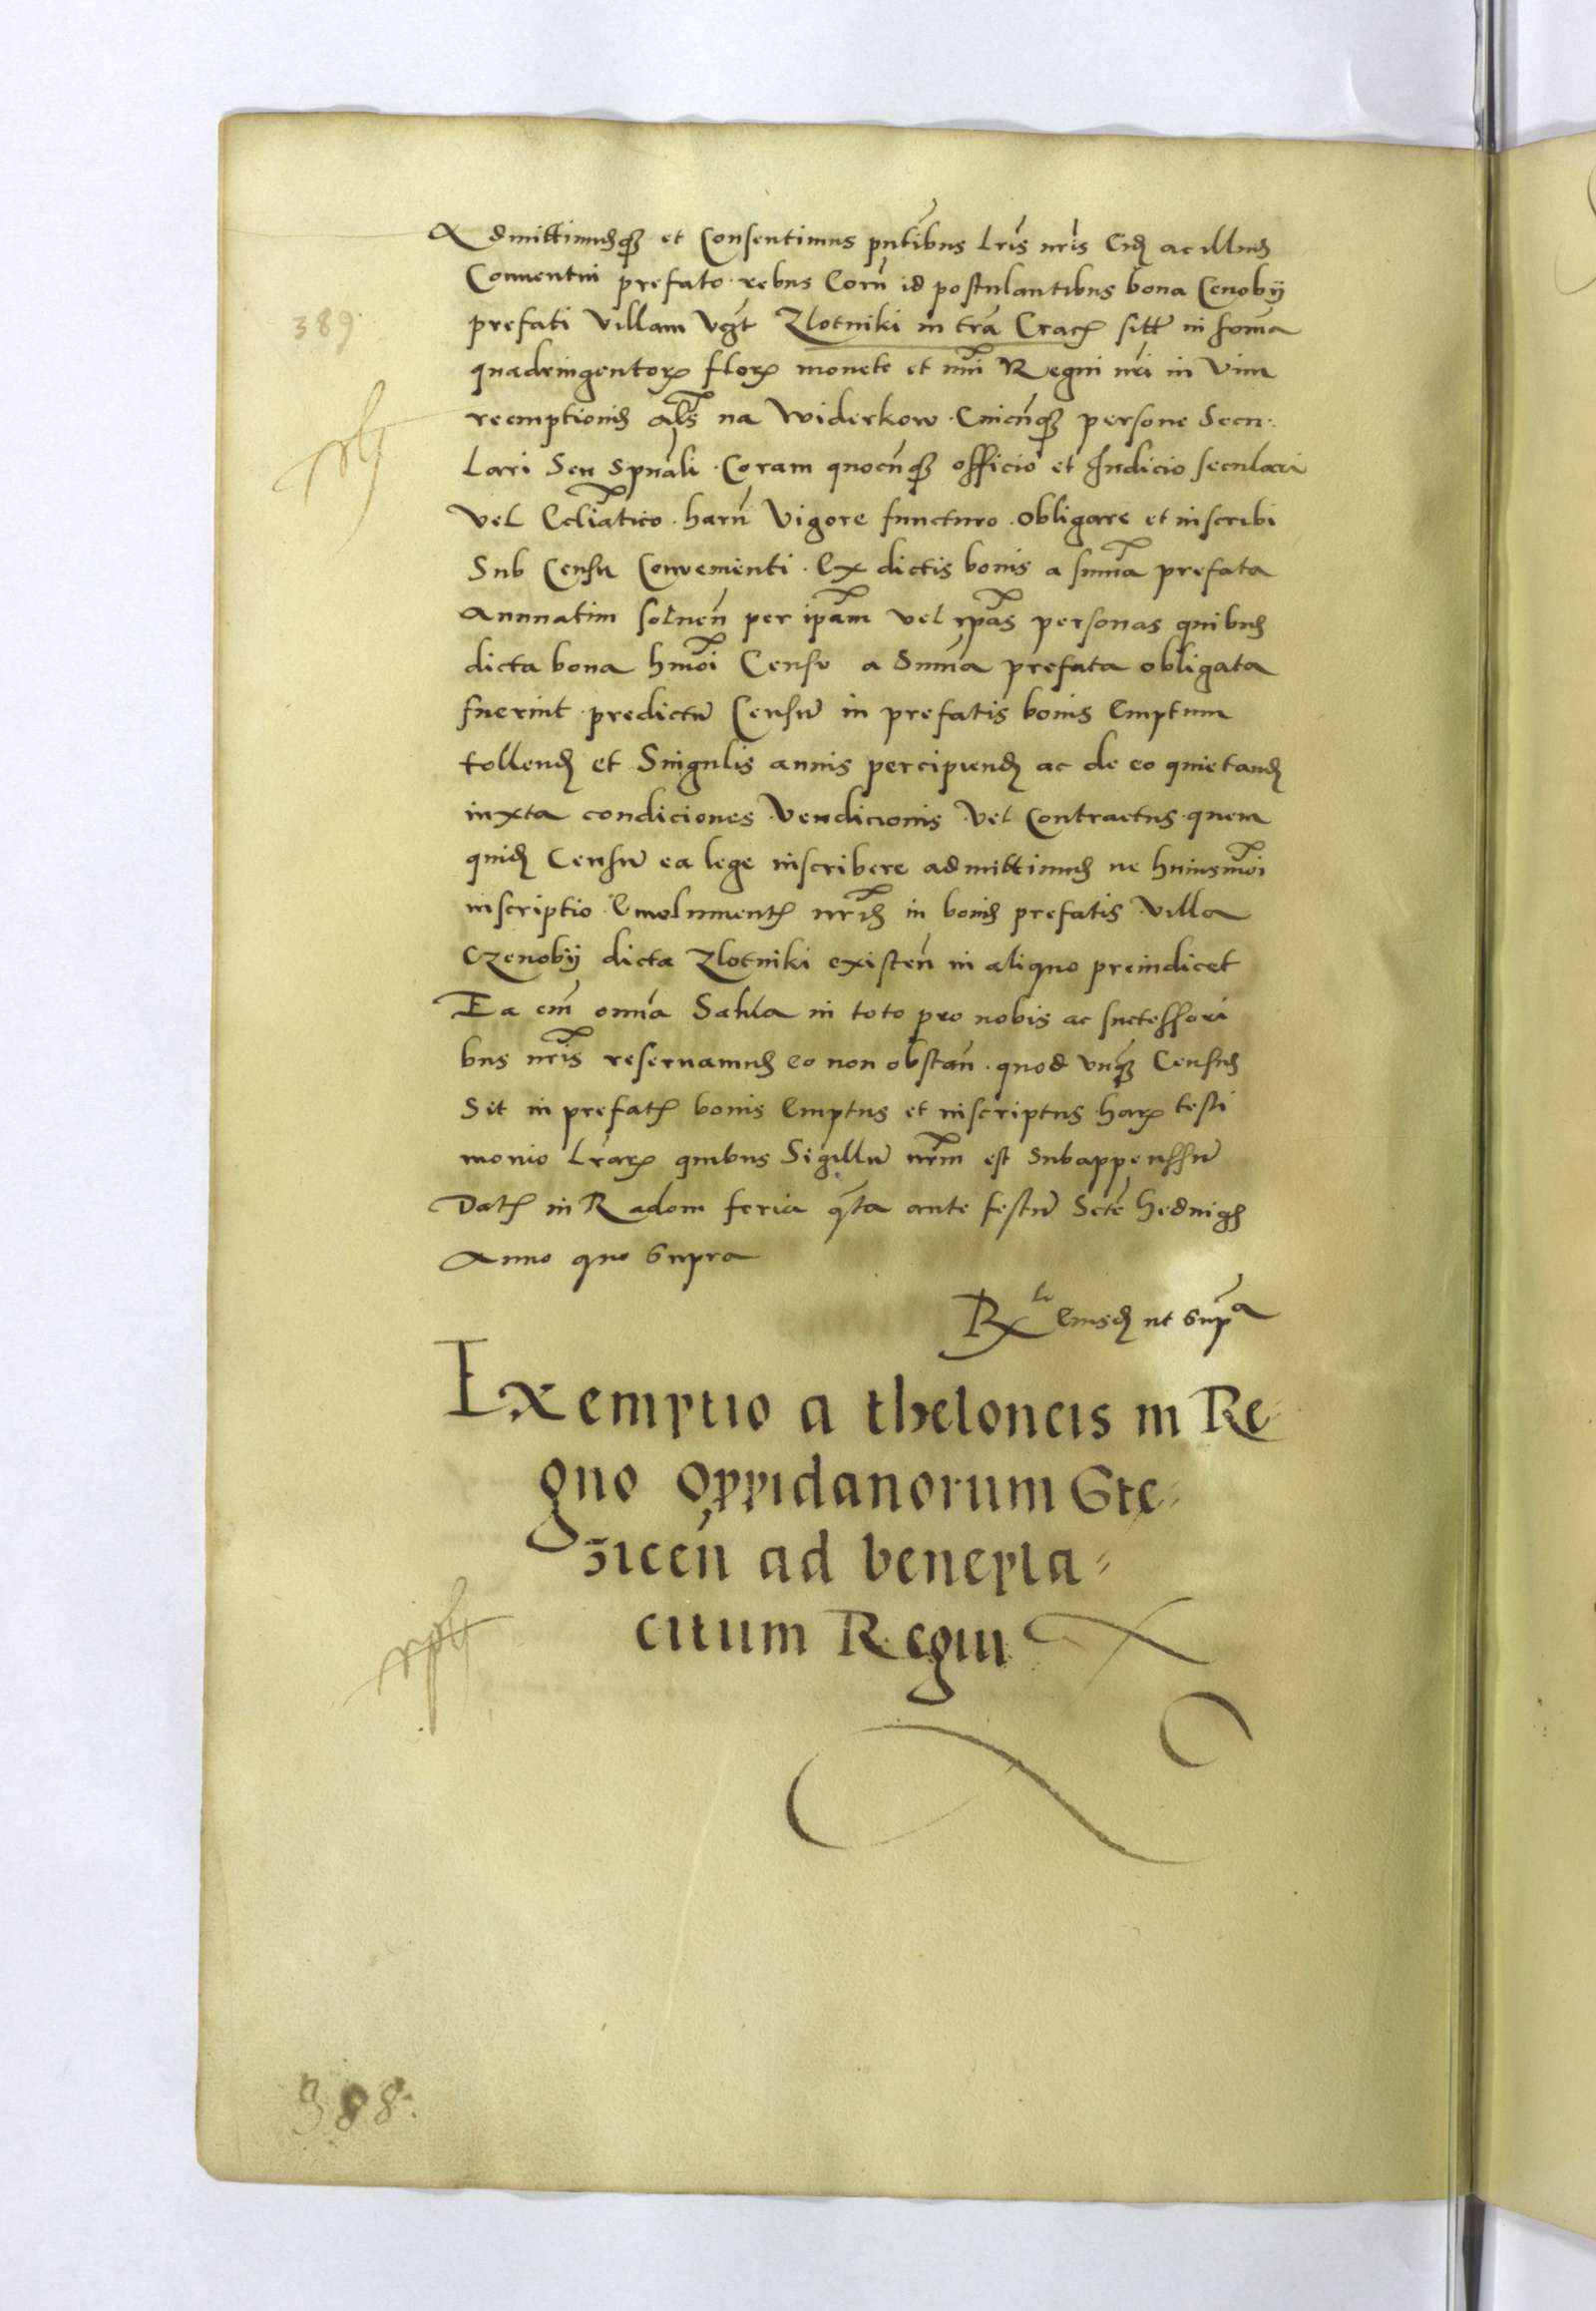 Admittimusq₃ et Consentimus pn̄tibus Lris nr̄is Eid₃ ac illius
Conuentui prefato rebus Eorū id postulantibus bona Cenobij
389 prefati Villam vꝫt Zlotniki in tr̄a Cracꝭ sitꝭ in som̄a
quadringentorꝫ florꝫ monete et nr̄i Regni nr̄i in vim
reemptionis al̄s na Widerkow Cuicūq₃ persone Secu
Lari Seu Spūali Coram quocūq₃ officio et Iudicio seculari
vel Eccliāstico harū Vigore functuro obligare et inscribi
Sub Censu Conuenienti Ex dictis bonis a sum̄a prefata
Annuatim soluen̄ per ip̄am vel ip̄as personas quibus
dicta bona hmōi Censu a Sum̄a prefata obligata
fuerint predictū Censū in prefatis bonis Emptum
tollend₃ et Singulis annis percipiend₃ ac de eo quietand₃
iuxta condiciones Vendicionis Vel Contractus quem
quid₃ Censū ea lege inscribere admittimus ne huiusmōi
inscriptio Emolumentꝭ nr̄is in bonis prefatis Villa
Czenobij dicta Zlotniki existen̄ in aliquo preiudicet
Ea em̄ om̄ia Salua in toto pro nobis ac successori
bus nr̄is reseruamus eo non obstan̄ quod vnq₃ Census
Sit in prefatꝭ bonis Emptus et inscriptus harꝫ testi
monio Lrarꝫ quibus Sigillū nr̄m est Subappenssū
Datꝭ in Radom feria qr̄ta ante festū Scte Heduigis
Anno quo Supra
Rx̄ Eiusd₃ ut Supᵃ
Exemptio a theloneis in Re
gno Oppidanorum Ste
zicen̄ ad benepla
citum Regni
388